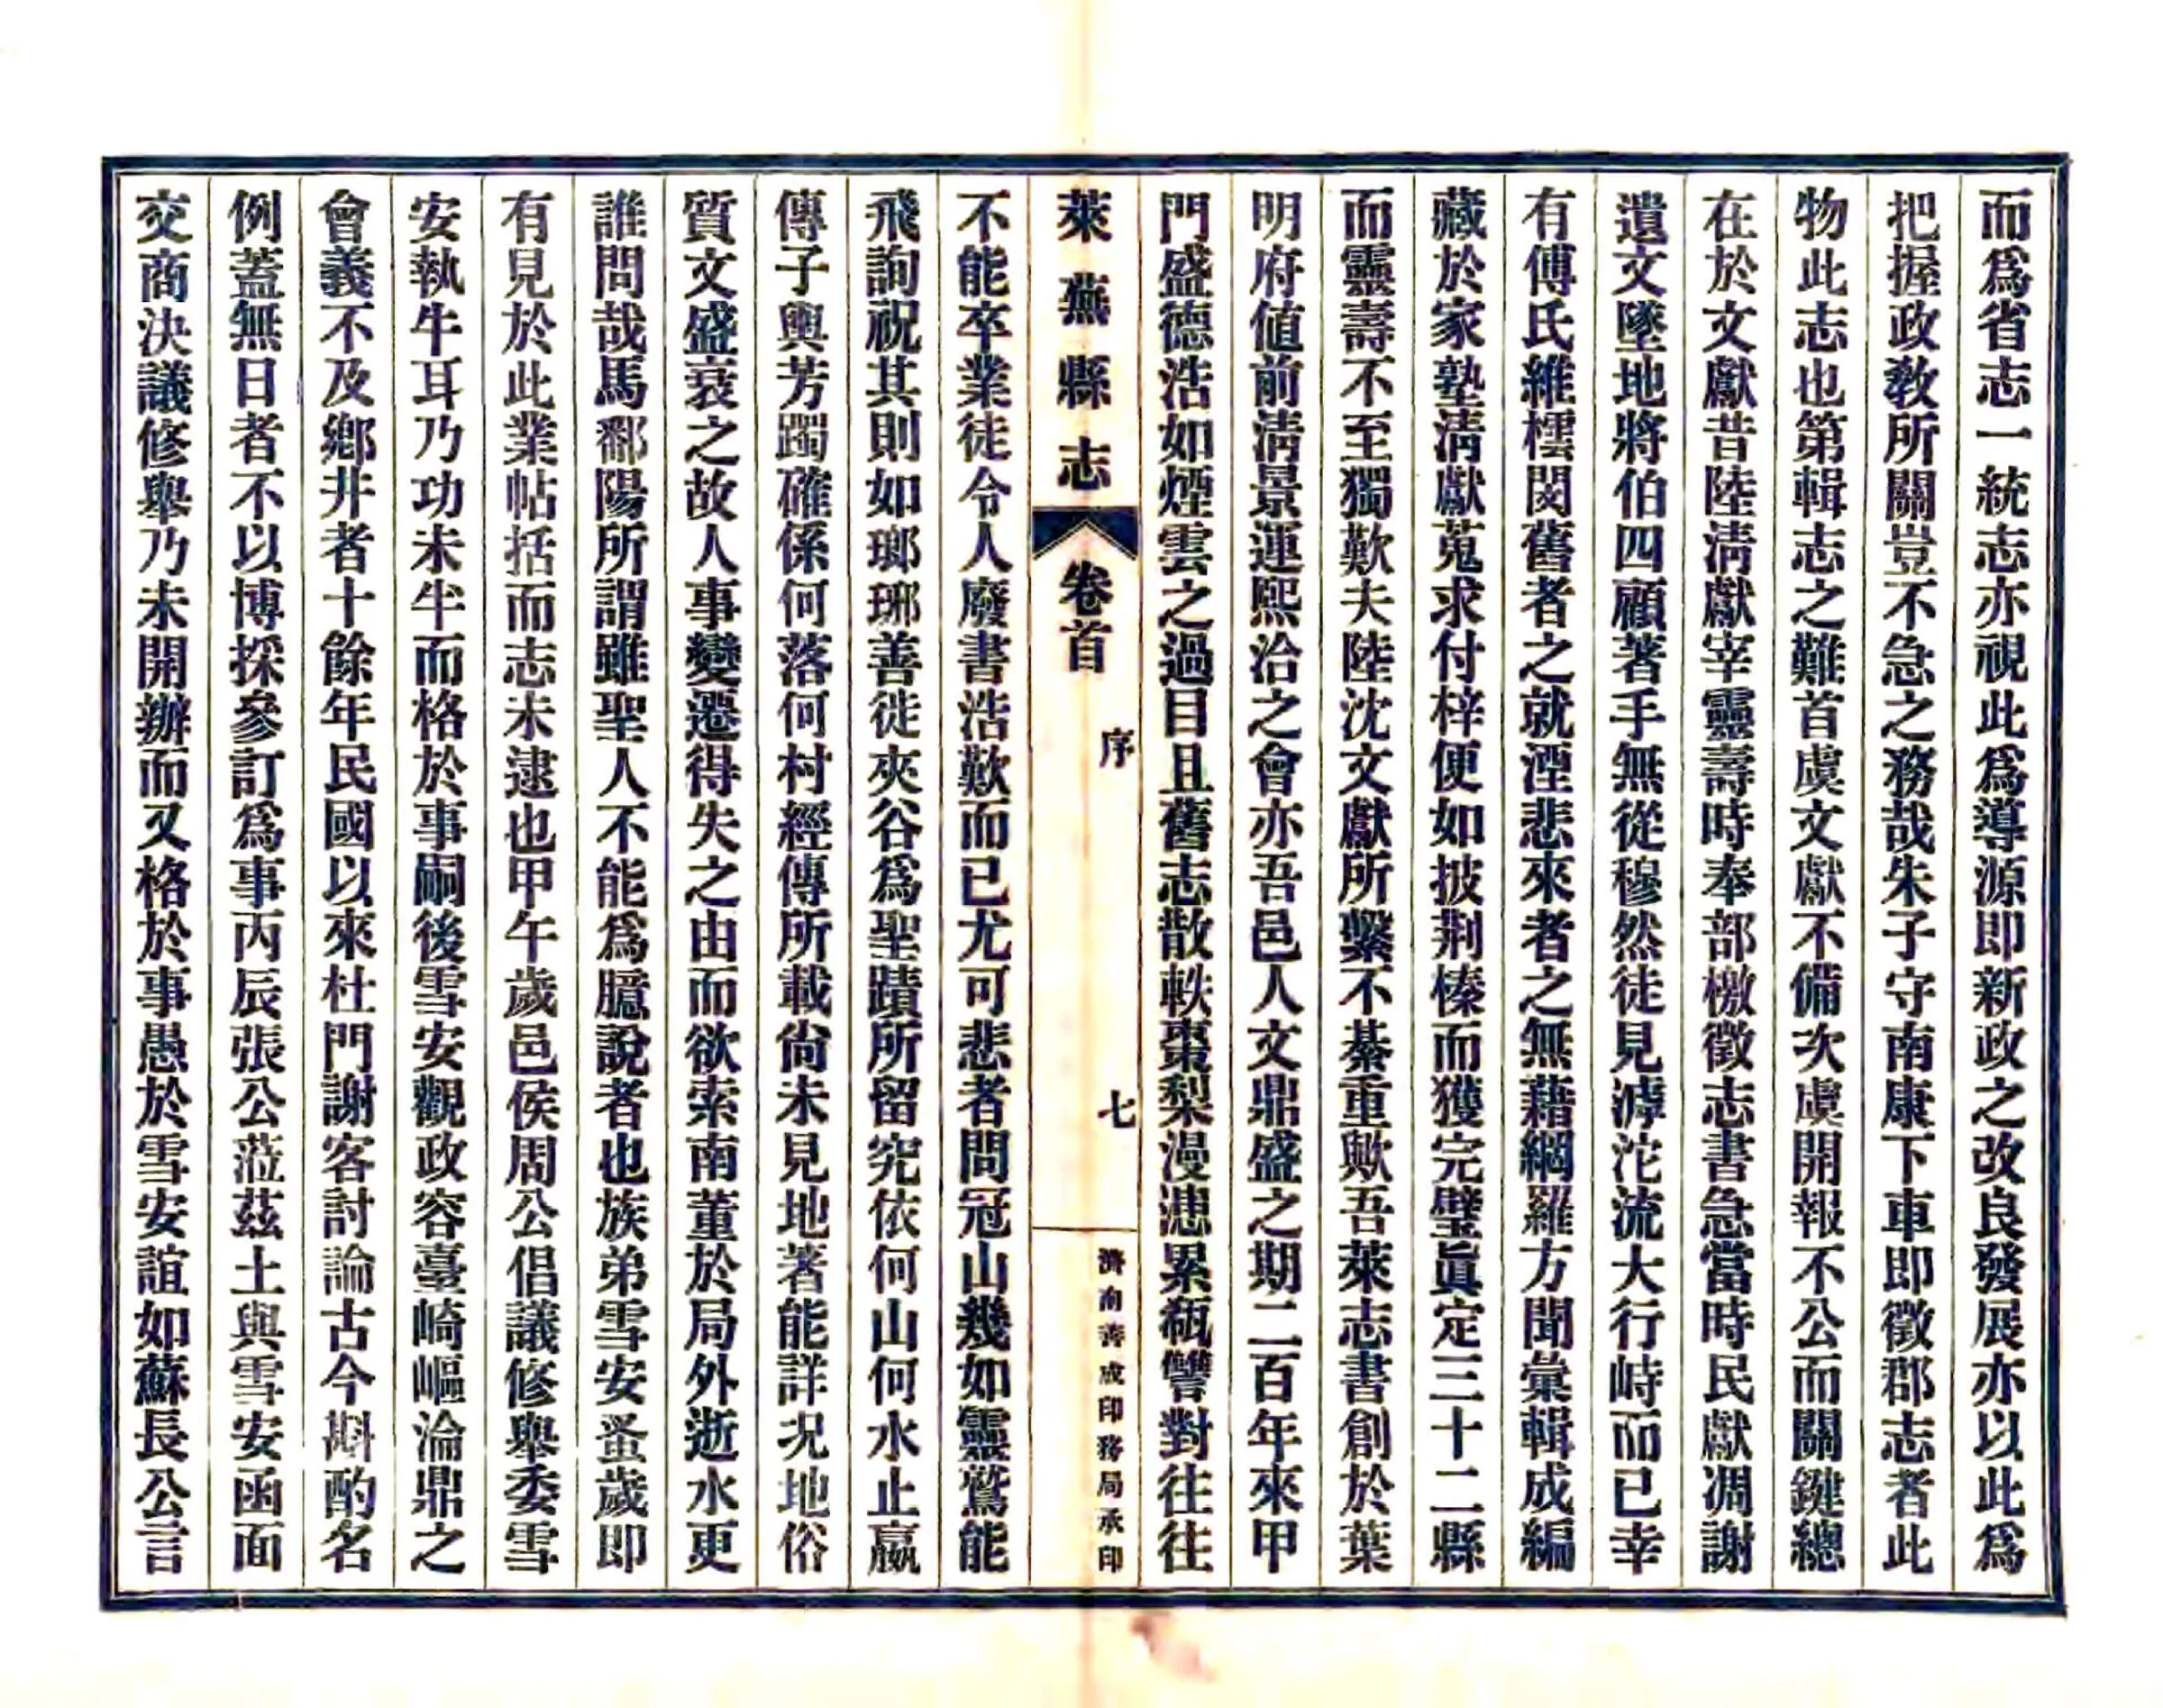 而爲省志一統志亦視此爲導源即新政之改良發展亦以此爲
把握政教所關豈不急之務哉朱子守南康下車即徵郡志者此
物此志也第輯志之難首虞文獻不備次虞開報不公而關鍵總
在於文獻昔陸淸獻宰靈壽時奉部檄徵志書急當時民獻凋謝
遺文墜地將伯四顧著手無從穆然徒見滹沱流大行峙而已幸
有傅氏維橒閔舊者之就湮悲來者之無藉網羅方聞彙輯成編
藏於家塾淸獻蒐求付梓便如披荆榛而獲完璧眞定三十二縣
而靈壽不至獨歎夫陸沈文獻所繫不綦重歟吾萊志書創於葉
明府値前淸景運熙洽之會亦吾邑人文鼎盛之期二百年來甲
門盛德浩如煙雲之過目且舊志散軼棗梨漫漶累瓻讐對往往
萊蕪縣志 卷首 序 七 濟南善成印務局承印
不能卒業徒令人廢書浩歎而已尤可悲者問冠山幾如靈鷲能
飛詢祝其則如瑯琊善徙夾谷爲聖蹟所留究依何山何水止嬴
傳子輿芳躅確係何落何村經傳所載尙未見地著能詳况地俗
質文盛衰之故人事變遷得失之由而欲索南董於局外逝水更
誰問哉馬鄱陽所謂雖聖人不能爲臆說者也族弟雪安蚤歲即
有見於此業帖括而志未逮也甲午歲邑侯周公倡議修舉委雪
安執牛耳乃功未半而格於事嗣後雪安觀政容臺崎嶇淪鼎之
會義不及鄉井者十餘年民國以來杜門謝客討論古今斟酌名
例蓋無日者不以博採參訂爲事丙辰張公蒞茲土與雪安函面
交商決議修舉乃未開辦而又格於事愚於雪安誼如蘇長公言